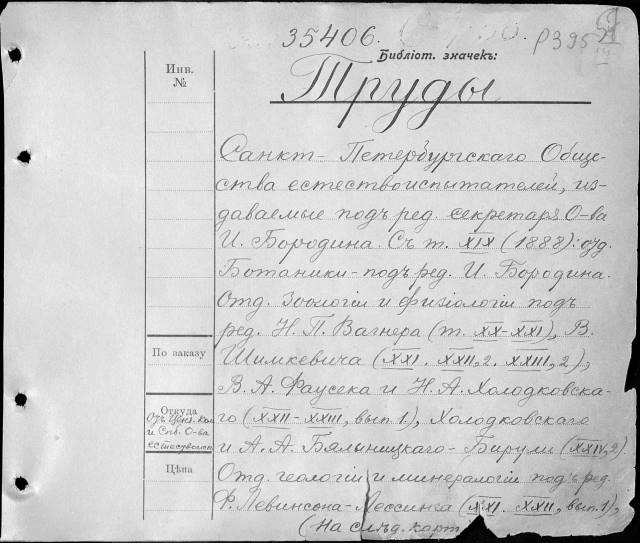 35406.
Р395
Библіот. значекъ:
Инв.
№
Труды
Санкт-Петербургскаго Обще-
ства естествоиспытателей, из-
даваемые подъ ред. секретаря О-ва
И. Бородина. Съ т. XIX (1888): отд.
Ботаники-подъ ред. И. Бородина.
Отд. зоологіи и физіологіи подъ
ред. Н. П. Вагнера (т. XX-XXI), В.
Шимкевича (XXI. XXII,2. XXIII,2),
В. А. Фаусека и Н. А. Холодковска-
го (XXII-XXIII, вып. 1.), Холодковскаго
и А. А. Бялыницкаго-Бирули (XXIV,2).
Отд. геологіи и минералогіи подъ ред.
Ф. Левинсона-Лессинга (XXI. XXII, вып. 1),
(На слѣд. карт
По заказу
Откуда
Отъ Ценз. Ком
и СПб. О-ва
естествоисп
Цѣна